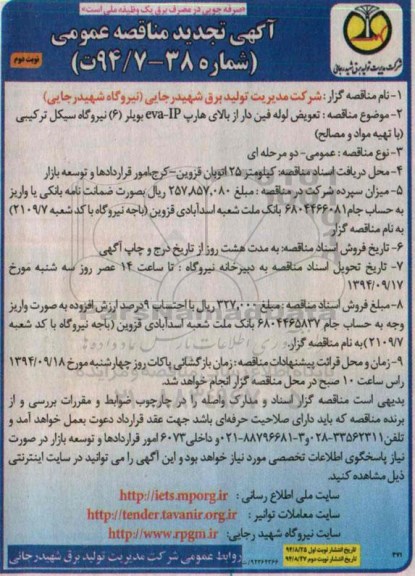 «صرفه جویی در مصرف برق یک وظیفه ملی است»
آگهی تجدید مناقصه عمومی
(شماره ۳۸-۹۴/۷ت)
نوبت دوم
شرکت مدیریت تولید برق شهید رجایی
۱- نام مناقصه گزار: شرکت مدیریت تولید برق شهیدرجایی (نیروگاه شهیدرجایی)
۲- موضوع مناقصه : تعویض لوله فین دار از بالای هارپ eva-IP بویلر (۶) نیروگاه سیکل ترکیبی
(با تهیه مواد و مصالح)
۳- نوع مناقصه : عمومی- دو مرحله ای
۴- محل دریافت اسناد مناقصه: کیلومتر ۲۵ اتوبان قزوین-کرج،امور قراردادها و توسعه بازار
۵- میزان سپرده شرکت در مناقصه : مبلغ ۲۵۷,۸۵۷,۰۸۰ ریال بصورت ضمانت نامه بانکی یا واریز
به حساب جام۶۸۰۴۴۶۶۰۸۱ بانک ملت شعبه اسدآبادی قزوین (باجه نیروگاه با کد شعبه ۲۱۰۹/۷)
به نام مناقصه گزار
۶- تاریخ فروش اسناد مناقصه: به مدت هشت روز از تاریخ درج و چاپ آگهی
۷- تاریخ تحویل اسناد مناقصه به دبیرخانه نیروگاه : تا ساعت ۱۴ عصر روز سه شنبه مورخ
۱۳۹۴/۰۹/۱۷
۸- مبلغ فروش اسناد مناقصه : مبلغ ۳۲۷,۰۰۰ ریال با احتساب ۹درصد ارزش افزوده به صورت واریز
وجه به حساب جام ۶۸۰۴۴۶۵۸۳۷ بانک ملت شعبه اسدآبادی قزوین (باجه نیروگاه با کد شعبه
۲۱۰۹/۷)به نام مناقصه گزار.
۹- زمان و محل قرائت پیشنهادات مناقصه : زمان بازگشائی پاکات روز چهارشنبه مورخ ۱۳۹۴/۰۹/۱۸
راس ساعت ۱۰ صبح در محل مناقصه گزار انجام خواهد شد.
بدیهی است مناقصه گزار اسناد و مدارک واصله را در چارچوب ضوابط و مقررات بررسی و از
برنده مناقصه که باید دارای صلاحیت حرفه‌ای باشد جهت عقد قرارداد دعوت بعمل خواهد آمد و
تلفن:۳۳۵۶۲۳۱۱-۰۲۸و۳-۸۸۷۹۶۶۸۱-۰۲۱ و داخلی۶۰۷۳ امور قراردادها و توسعه بازار در صورت
نیاز پاسخگوی اطلاعات تخصصی مورد نیاز خواهد بود و این آگهی را می توانید در سایت اینترنتی
ذیل مشاهده کنید.
سایت ملی اطلاع رسانی : http://iets.mporg.ir
سایت معاملات توانیر : http://tender.tavanir.org.ir
سایت نیروگاه شهید رجایی: http://www.rpgm.ir
تاریخ انتشار نوبت اول ۹۴/۸/۲۵
تاریخ انتشار نوبت دوم ۹۴/۸/۲۷
روابط عمومی شرکت مدیریت تولید برق شهیدرجائی